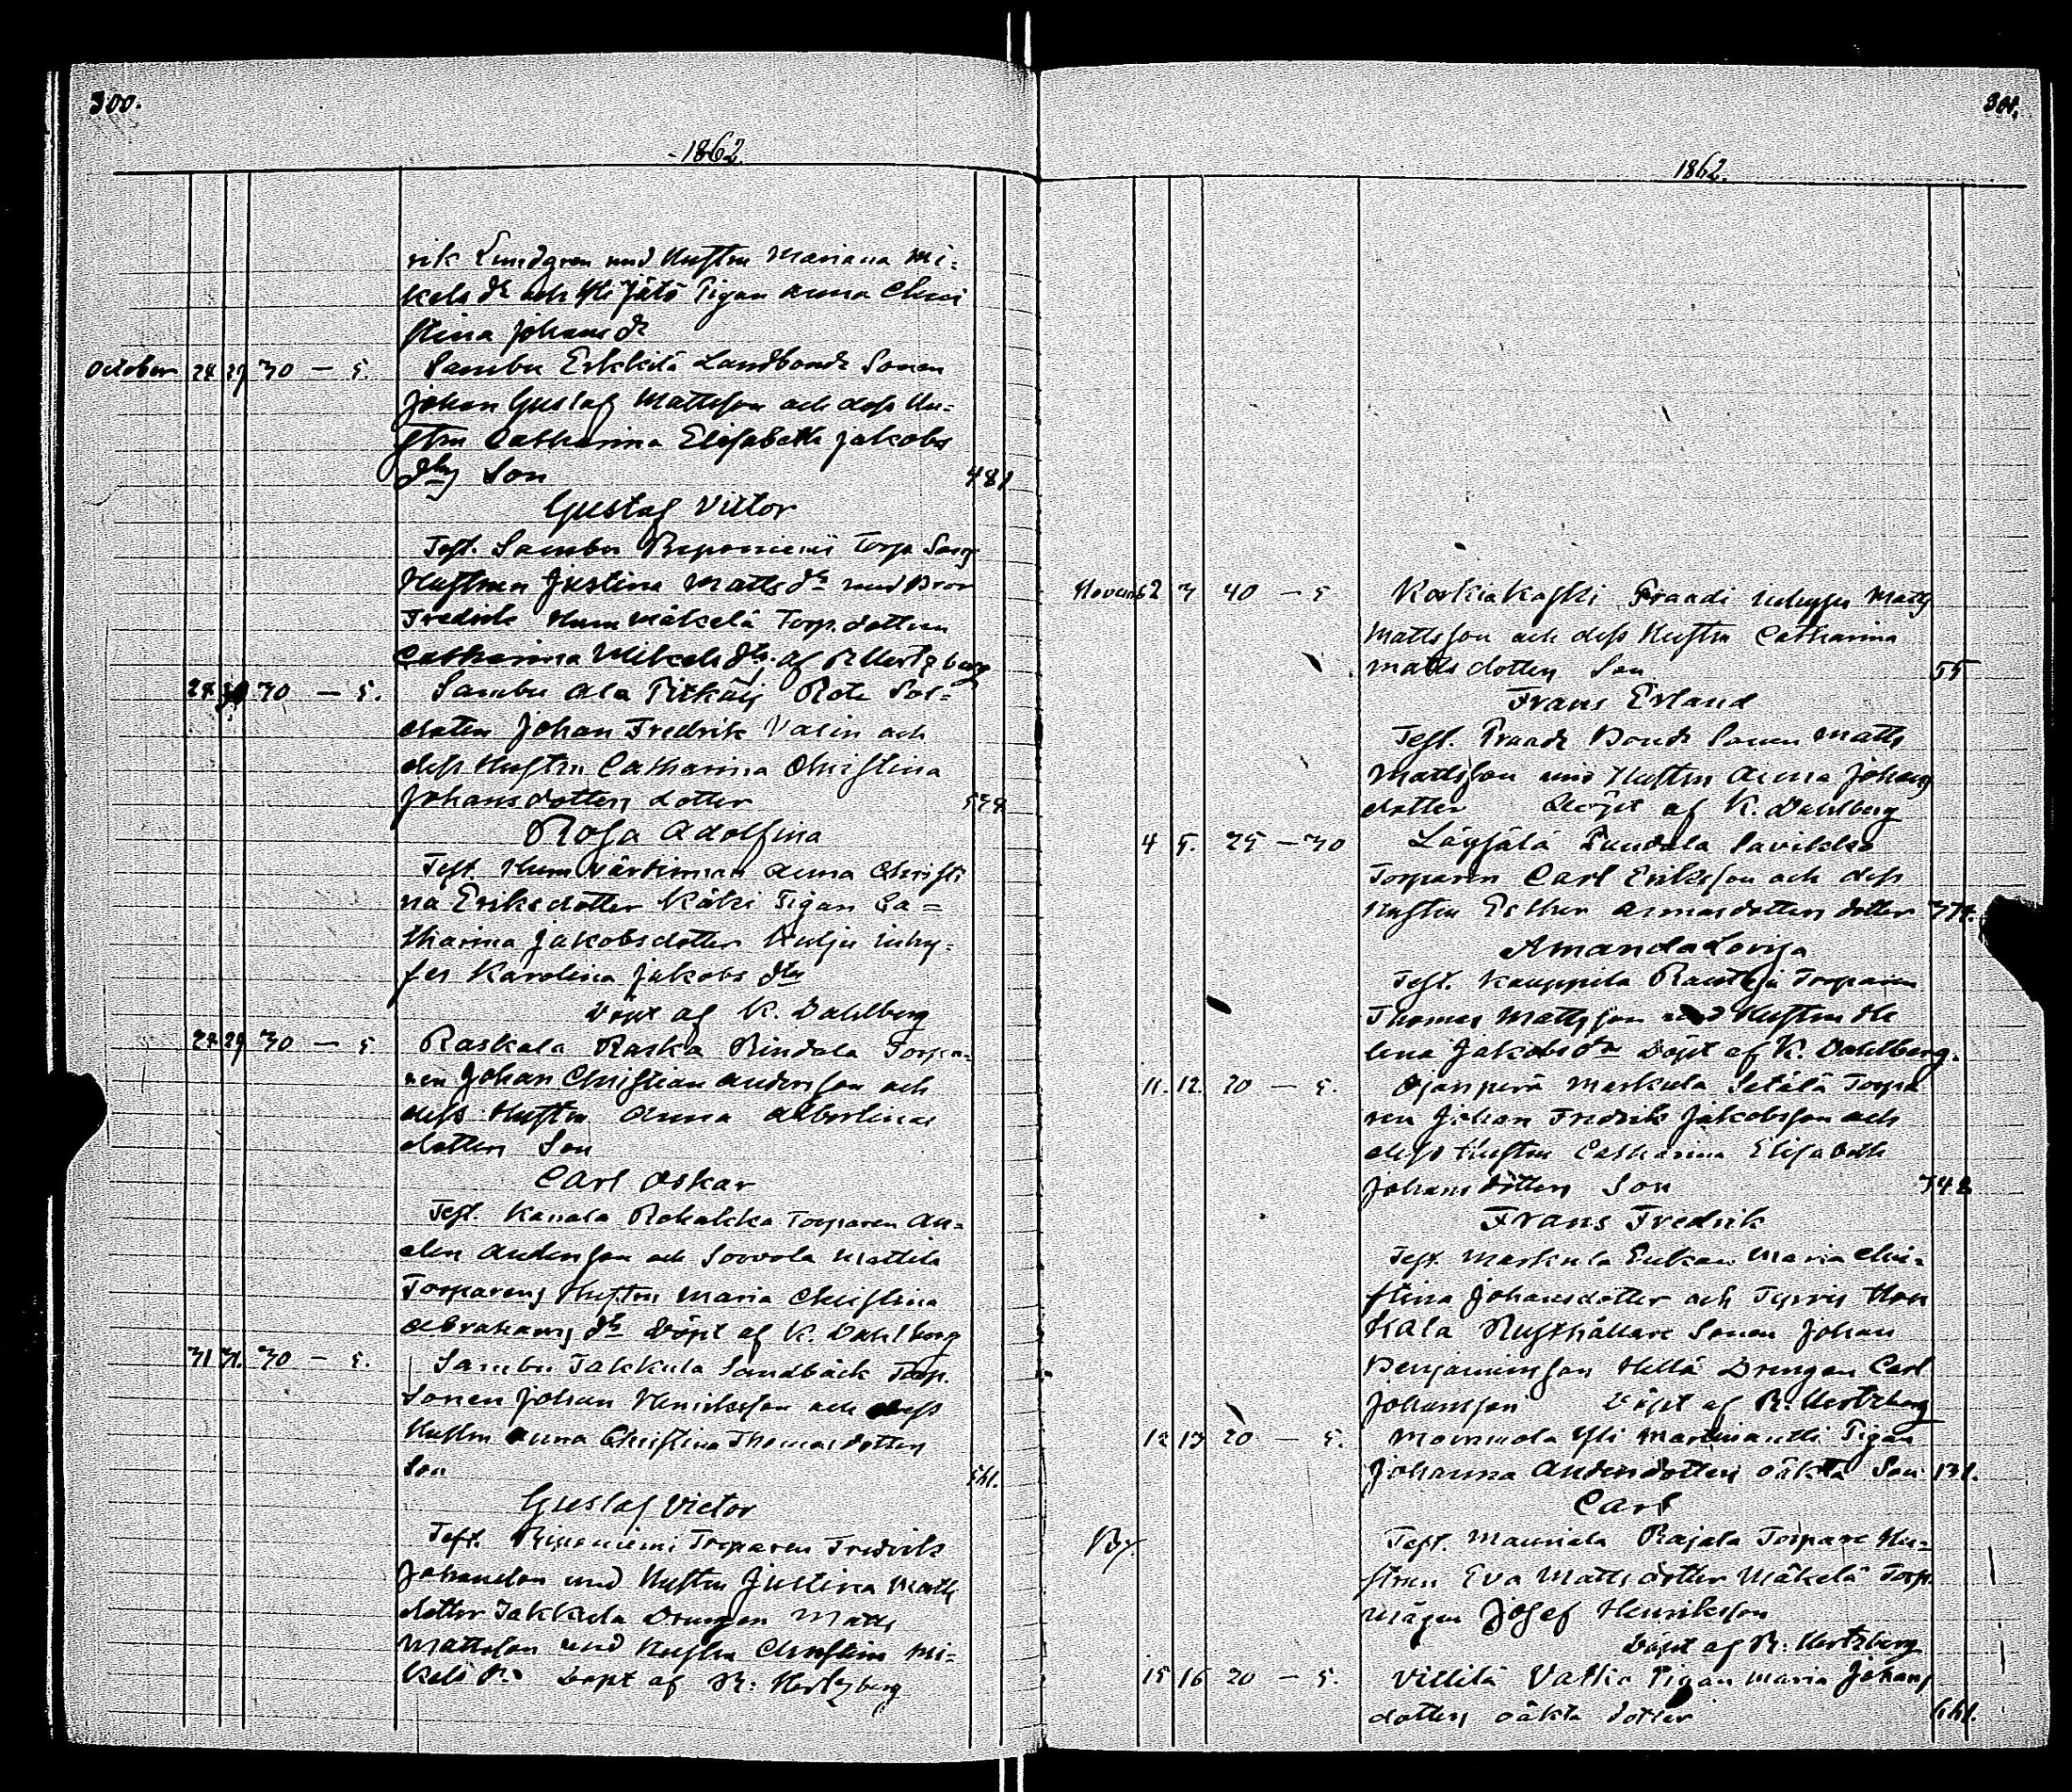 300.
-1862.
rik Lundgren med Hustru Mariana Mi-
kels dr och Yli Jätö Pigan Anna Chri
stina Johans dr
October 28 29 30 — 5. Sambu Erkkilä Landbonde Sonen
Johan Gustaf Mattsson och dess Hu-
stru Catharina Elisabeth Jakobs
dtrs Son 481
Gustaf Victor
Test. Sambu Reponiemi Torp
Hustrun Justina Matts dr med
Fredrik Mäkelä Torp. dottren
Catharina Mikels dtr. af R Hertzberg
28 30 — 5. Sambu Ala Pitkäys Rote Sol-
daten Johan Fredrik Valin och
dess Hustru Catharina Christina
Johansdotters dotter
Rosa Adolfina
Test. värdinnan Anna Christi
na Eriksdotter Käki Pigan Ca=
tharina Jakobsdotter inhy-
ses Karolina Jakobs dtr
Döpt af K. Dahlberg
28 29 30 — 5. Raskala Raska Rindala Torpa-
ren Johan Christian Andersson och
dess Hustru Anna Albertina
dotters Son
Carl Oskar
Test. Kanala Rekakka Torparen An-
ders Andersson och Soovola Mattila
Torparens Hustru Maria Christina
Abrahams dtr Döpt af K. Dahlberg
31 31. 30 — 5. Sambu Takkula Sandbäck Torp.
Sonen Johan Henriksson och dess
Hustru Anna Christina Thomasdotters
Son 561.
Gustaf Victor
Test. Reponiemi Torparen Fredrik
Johansson med Hustru Justina Matts
dotter Takkula Drengen Matts
Mattsson med Hustru Christina Mi-
kels dr Döpt af R. Hertzberg
301.
1862.
Novemb 2 3 40 — 5 Koskiakoski Fraadi inhyses Matts
Mattsson och dess Hustru Catharina
Mattsdotters Son 55
Frans Erland
Test. Praade Bonde Sonen Matts
Mattsson med Hustru Anna Johans
dotter Döpt af K. Dahlberg
4 5. 25 — 30 Sundola Savikko
Torparen Carl Eriksson och dess
Hustru Esther dotters dotter 374.
Amanda Lovisa
Test. Kauppila Torparen
Thomas Mattsson med Hustru He
lena Jakobs dtr Döpt af K. Dahlberg.
11. 12. 20 — 5. Ojanperä Markula Setälä Torpa
ren Johan Fredrik Jakobsson och
dess Hustru Catharina Elisabeth
Johans dotters Son 342
Frans Fredrik
Test. Markula Enkan Maria Chri-
stina Johansdotter och Tyrvis Hon
kala Rusthållare Sonen Johan
Benjaminsson Hellä Drengen Carl
Johansson Döpt af R. Hertzberg
12 13 20 — 5. Mommola Yli Marttiantti Pigan
Johanna Andersdotters oäkta Son 131.
Carl
By. Test. Mauriala Rajala Torpare Hu-
strun Eva Matts dotter Mäkelä Torp.
Mågen Josef Henriksson
Döpt af R. Hertzberg
15 16 20 — 5. Villilä Vatka Pigan Maria Johans
dotters oäkta dotter 661.